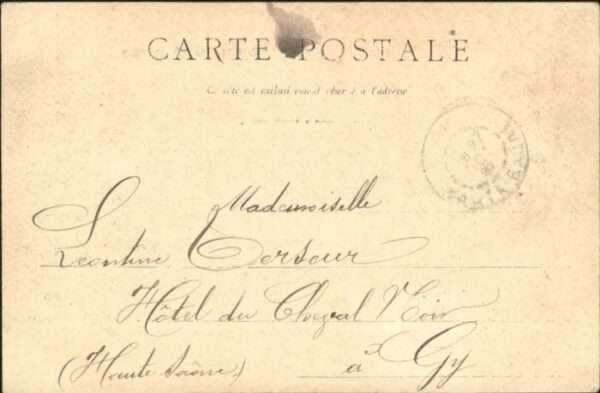 CARTE POSTALE
Ce côté est exclusivement réservé à l'adresse
Mademoiselle
Leontine
Hôtel du Cheval Noir
à Gy
(Haute Saône)